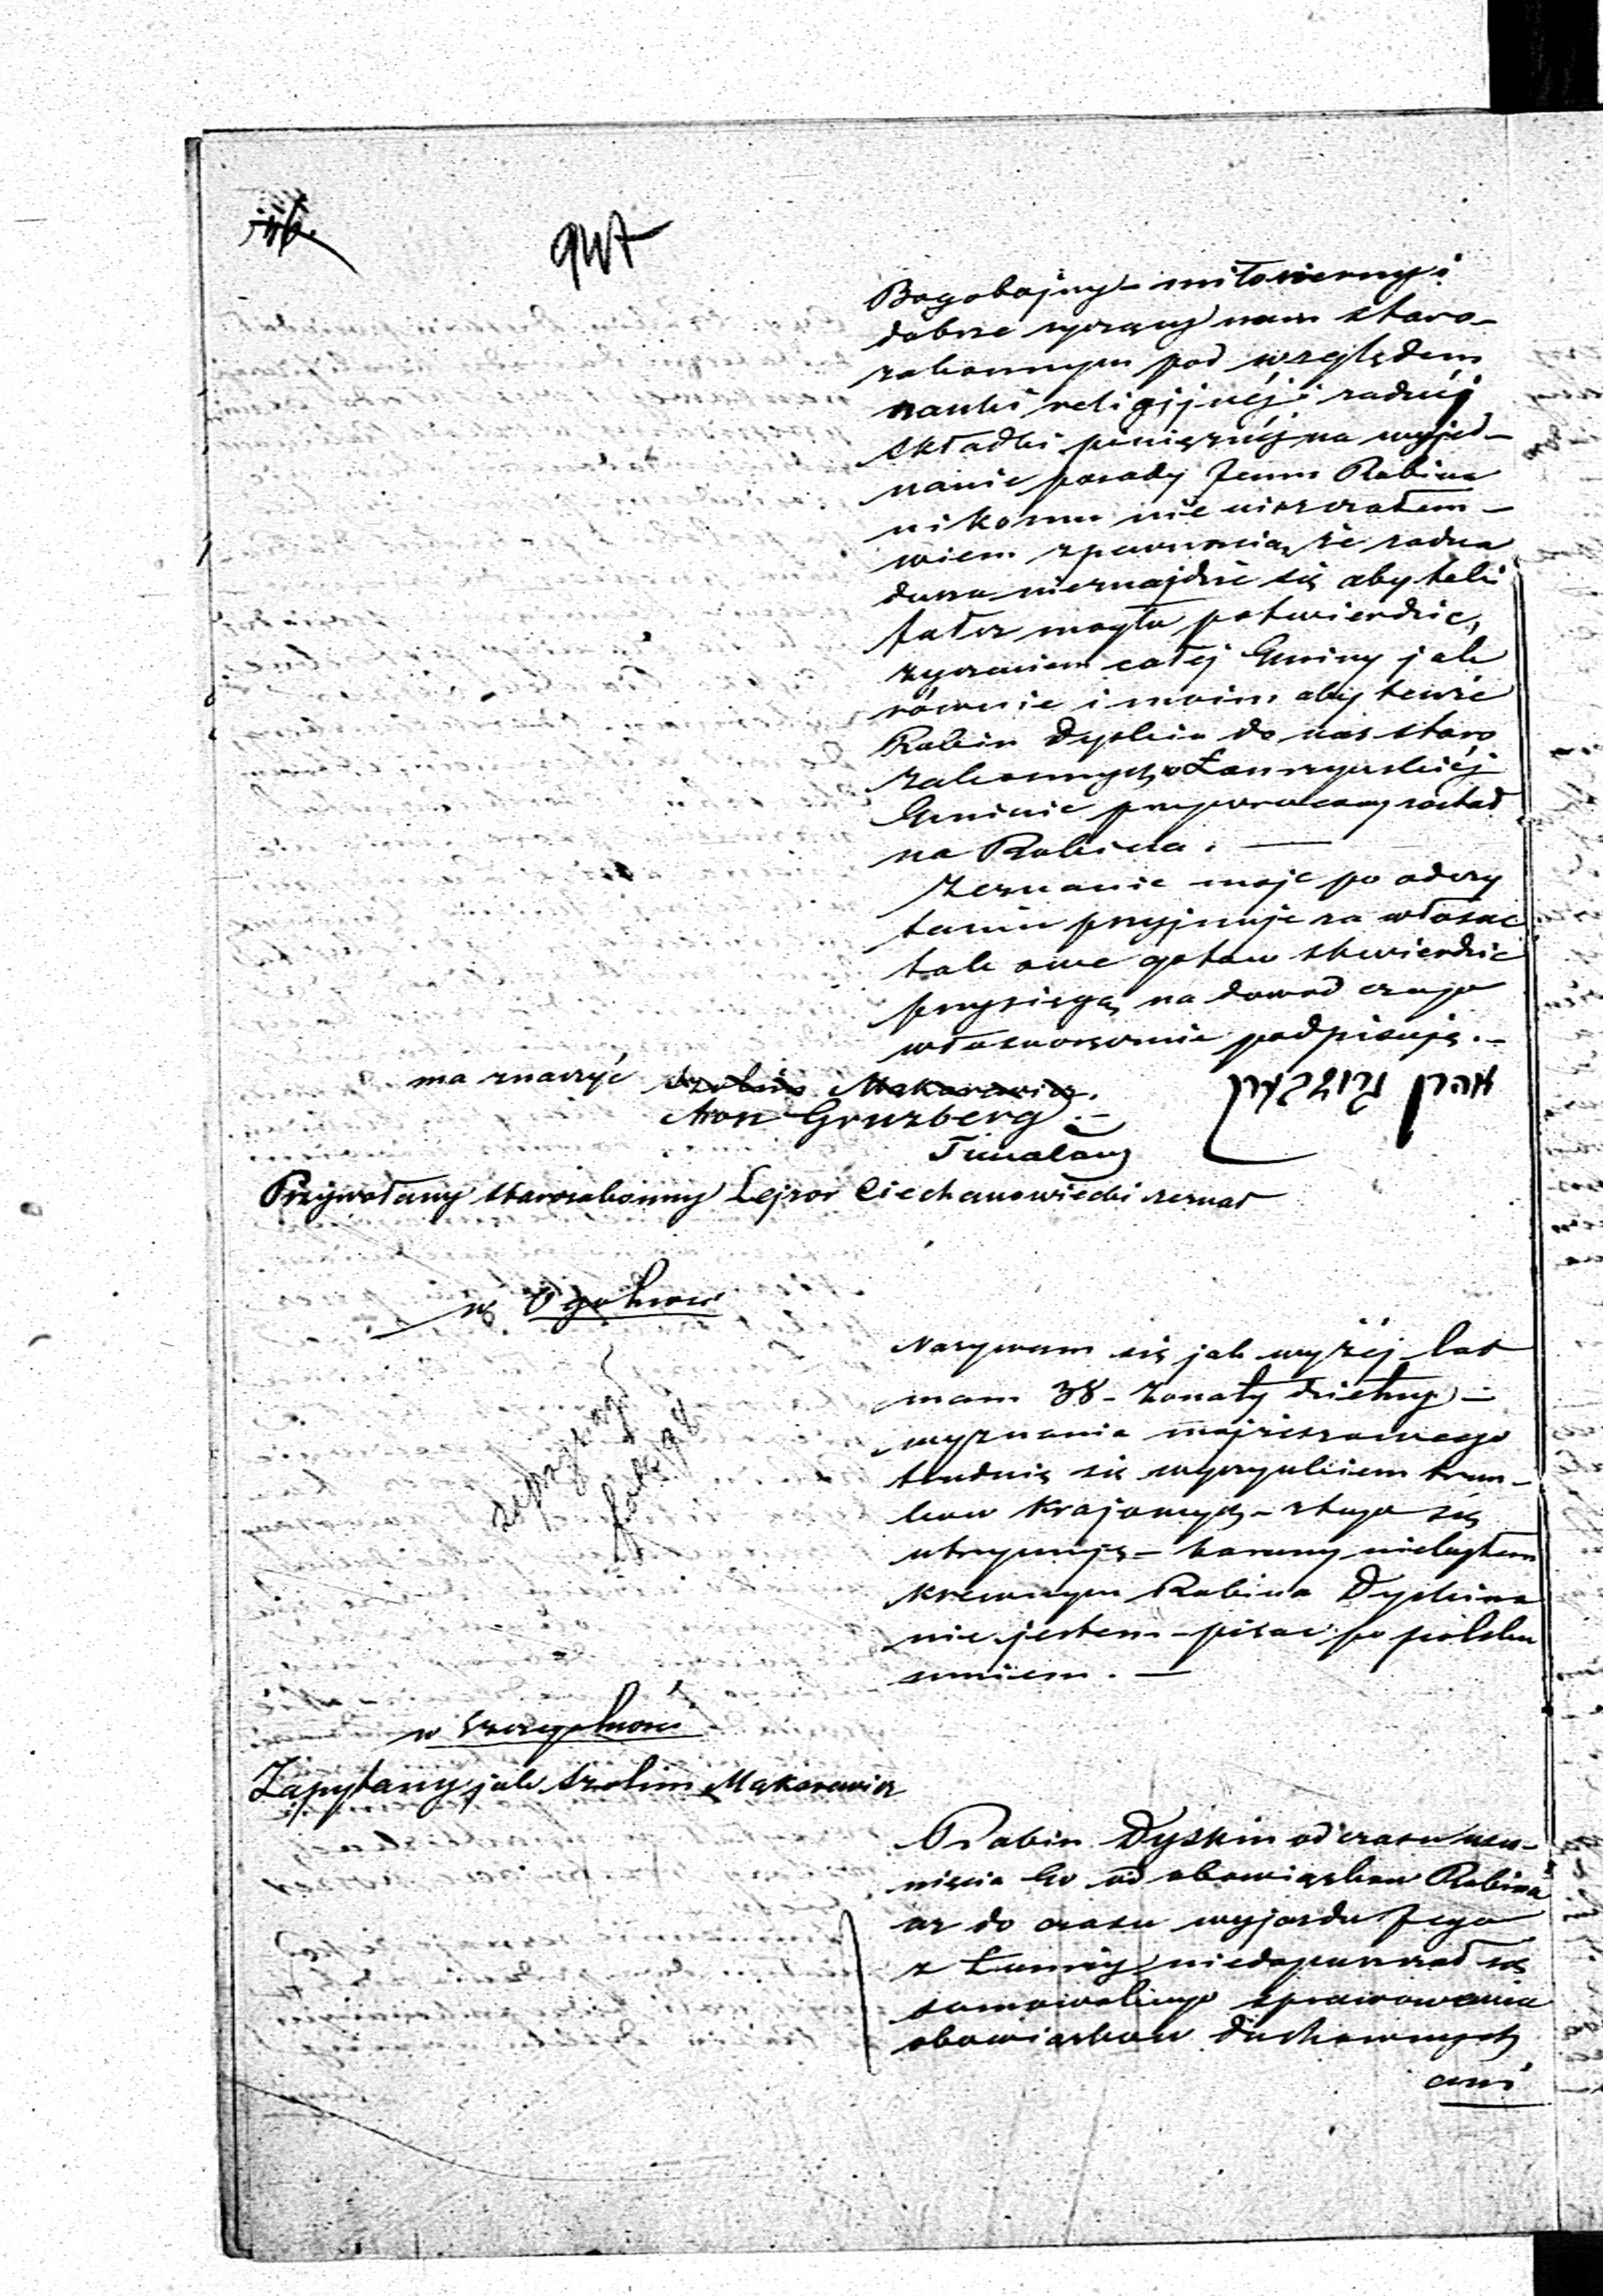 947
Bogobojny – miłosierny i
dobrze życzący nam staro-
zakonnym pod względem
nauki religijnéj i żadnéj
składki pieniężnéj na wyjed-
nanie posady Jemu Rabina
nikomu nie uiszczałem –
wiem z pewnością że żadna
dusza nieznajdzie się aby taki
fałsz mogła potwierdzić,
życzeniem całéj Gminy jak
równie i moim aby tenże
Rabin Dyskin do nas staro
zakonnych w Łomzyńskiéj
Gminie przywrócony został
na Rabina. —
Zeznanie moje po odczy
taniu przyjmuję za własne
takowe gotów stwierdzić
przysięgą na dowód czego
własnoręcznie podpisuję. –
ma znaczyć Szolim Makarewicz.
Aron Grunzberg. –
Przywołany starozakonny Lejzor Ciechanowiecki zeznał
w Ogolności
Nazywam się jak wyżéj lat
mam 38 – żonaty dzietny –
wyznania mojżeszowego
trudnię się wyszynkiem trun-
ków Krajowych – z tego się
utrzymuję – karany niebyłem
krewnym Rabina Dyskina
nie jestem – pisać po polsku
umiem. —
w Szczególności
Zapytany jak Szolim Makarewicz
Rabin Dyskin od czasu usu-
nięcia Go od obowiązków Rabina
aż do czasu wyjazdu Jego
z Łomży niedopuszczał się
samowolnego sprawowania
obowiązków duchownych
ani